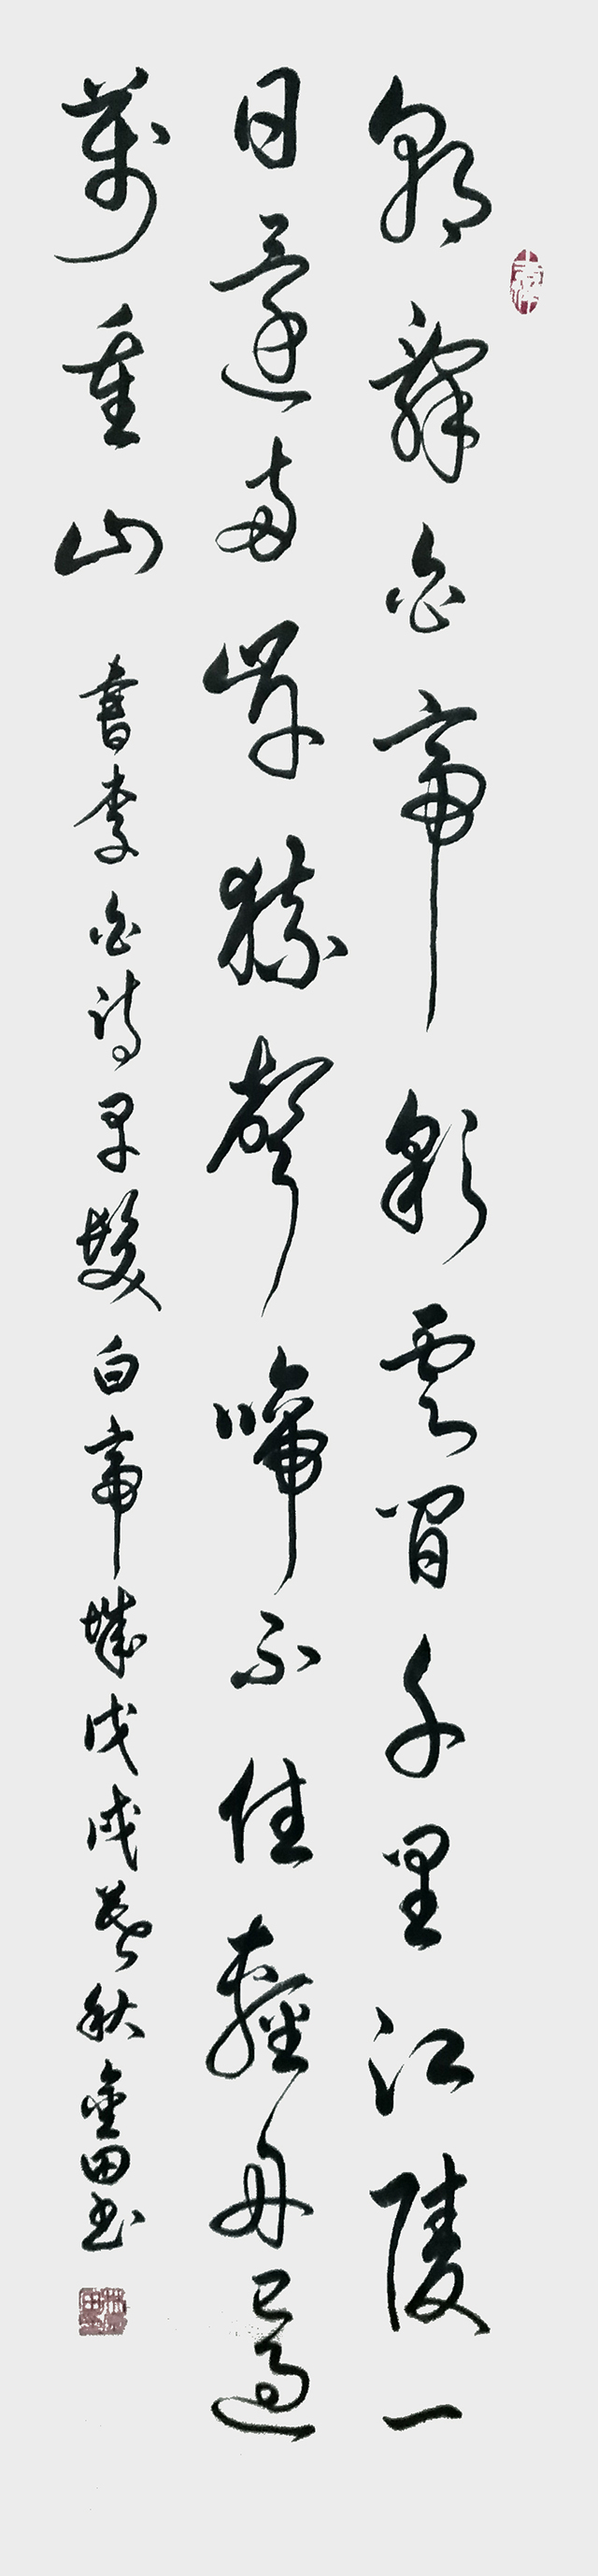 朝辞白帝彩雲間千里江陵一
日還兩岸猿聲啼不住輕舟已過
萬重山 書李白詩早發白帝城戊戌暮秋金田書